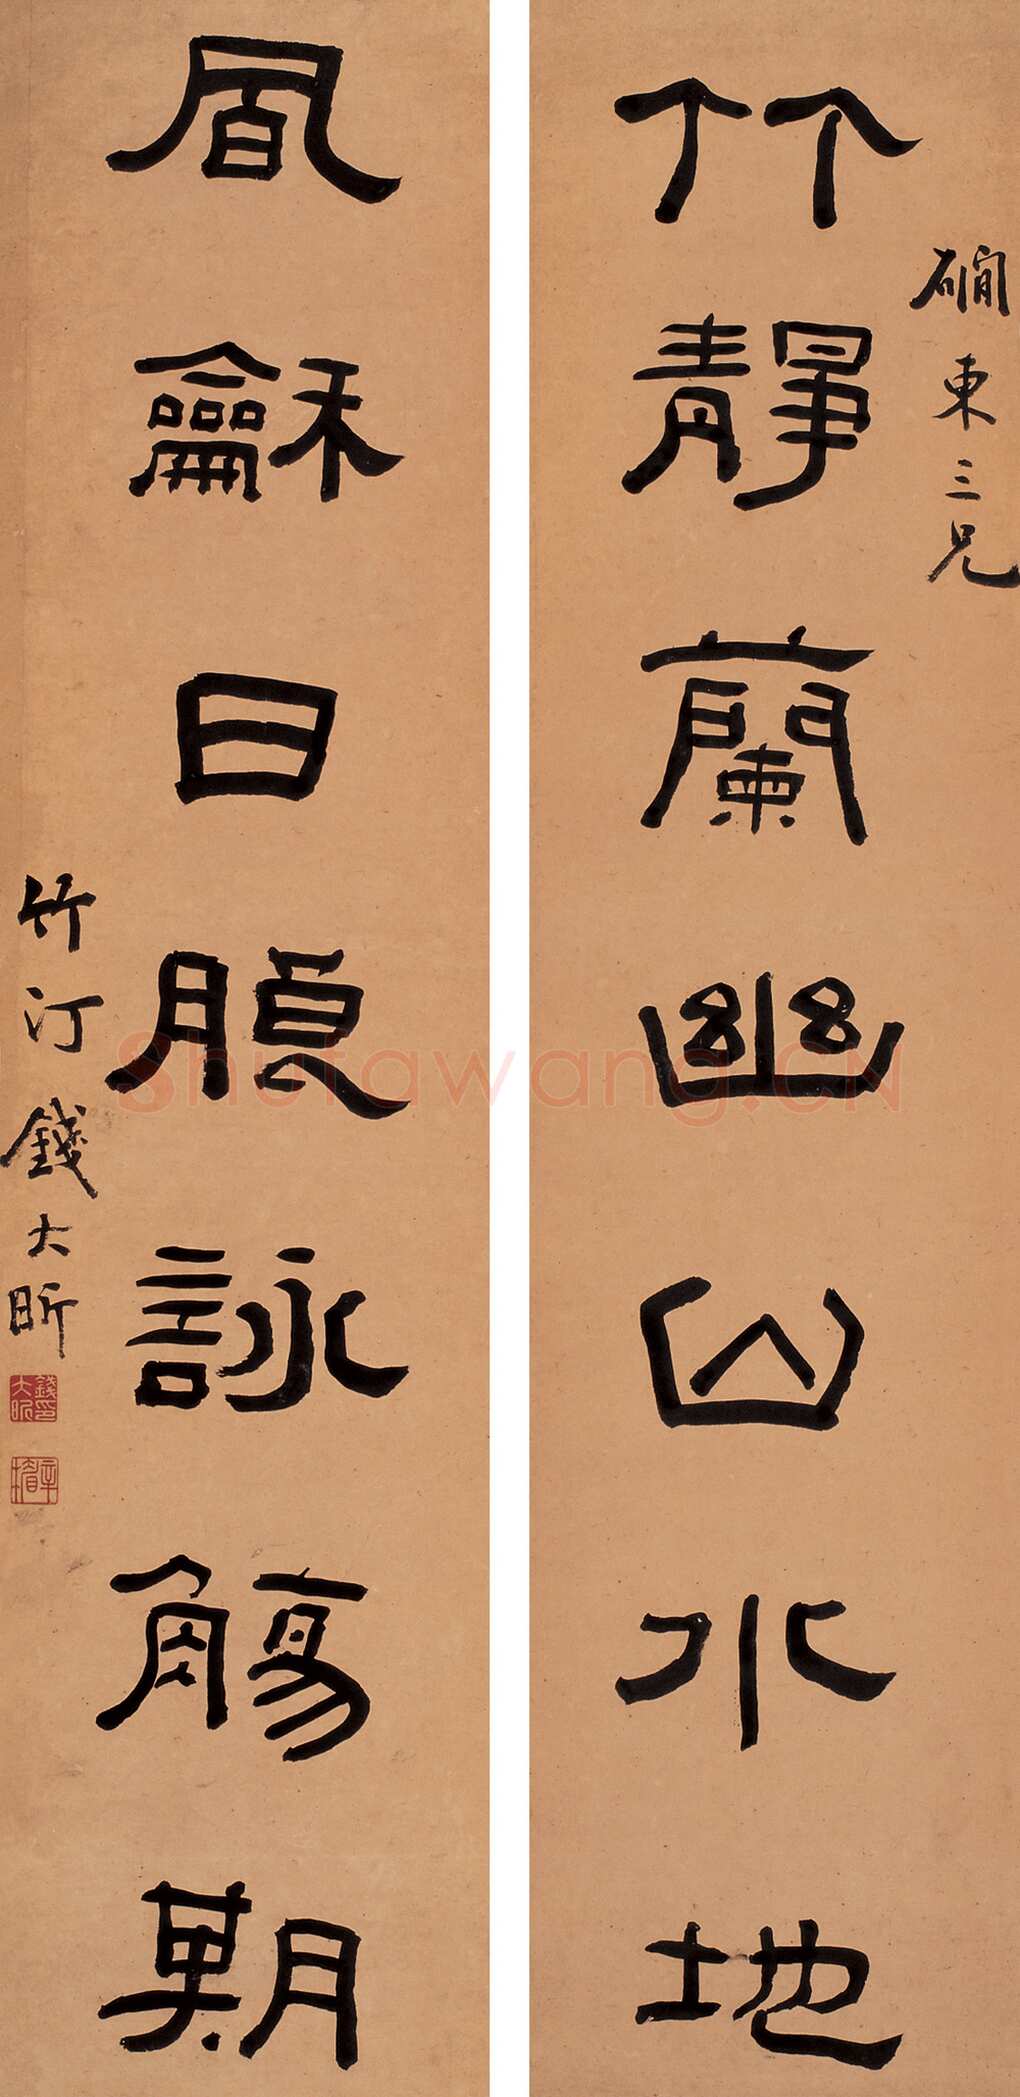 磵東三兄
竹靜蘭幽山水地
風龢日朖詠觴期
竹汀錢大昕
錢印大昕
辛楣
Shufawang.CN